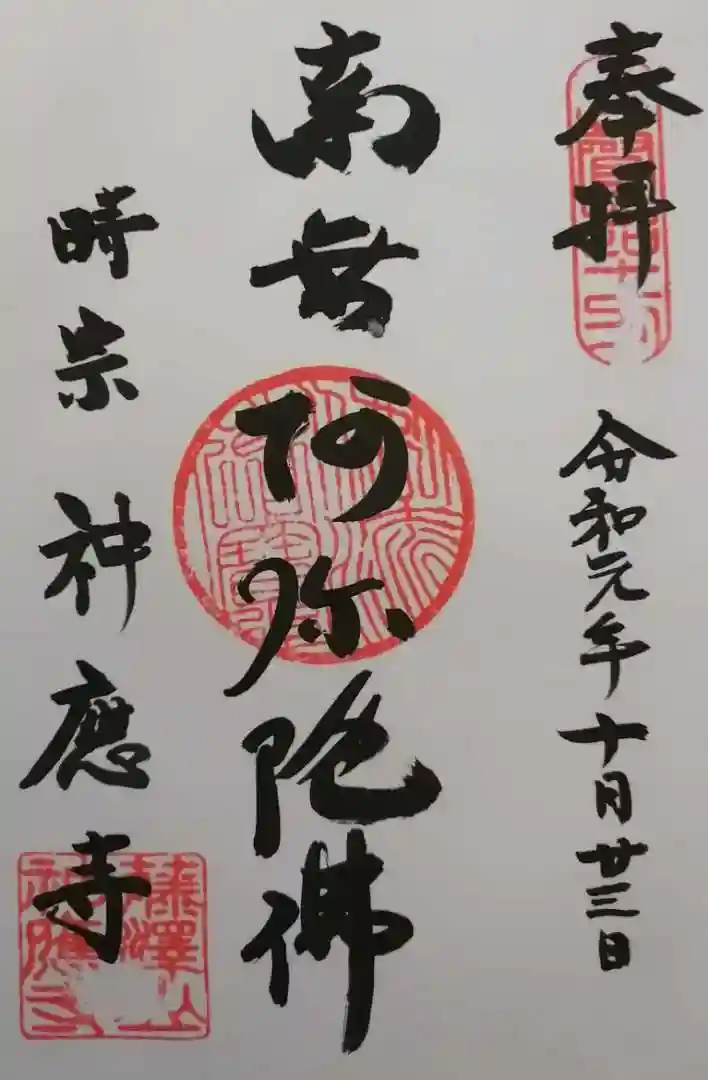 奉拝
令和元年十月廿三日
南無阿弥陀佛
時宗 神應寺
藤澤山
神應寺